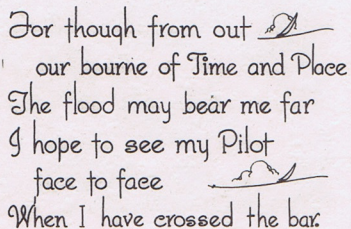 For though from out
our bourne of Time and Place
The flood may bear me far
I hope to see my Pilot
face to face
When I have crossed the bar.